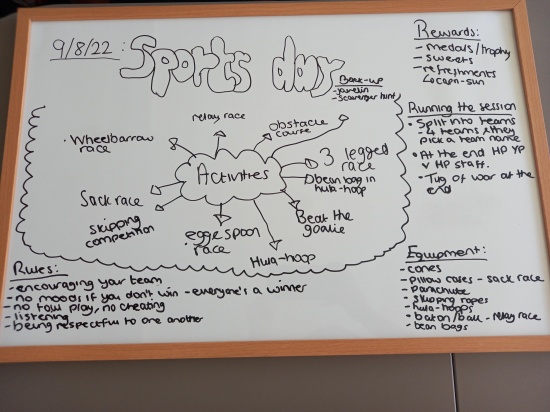 9/8/22: Sports day
Back-up
- Javelin
- Scavenger hunt
Activities
relay race
obstacle
course
3 legged
race
bean bag in
hula-hoop
Beat the
goalie
Hula-hoop
egg & spoon
race
skipping
competition
Sack race
Wheelbarrow
race
Rewards:
- medals/trophy
- sweets
- refreshments
↳ capri-sun
Running the session
• Split into teams
- 4 teams & they
pick a team name
• At the end HP YP
v HP staff.
• Tug of war at the
end
Rules:
- encouraging your team
- no moods if you don't win - everyone's a winner
- no foul play, no cheating
- listening
- being respectful to one another
Equipment:
- cones
- pillow cases - sack race
- parachute
- skipping ropes
- hula-hoops
• baton/ball - relay race
- bean bags